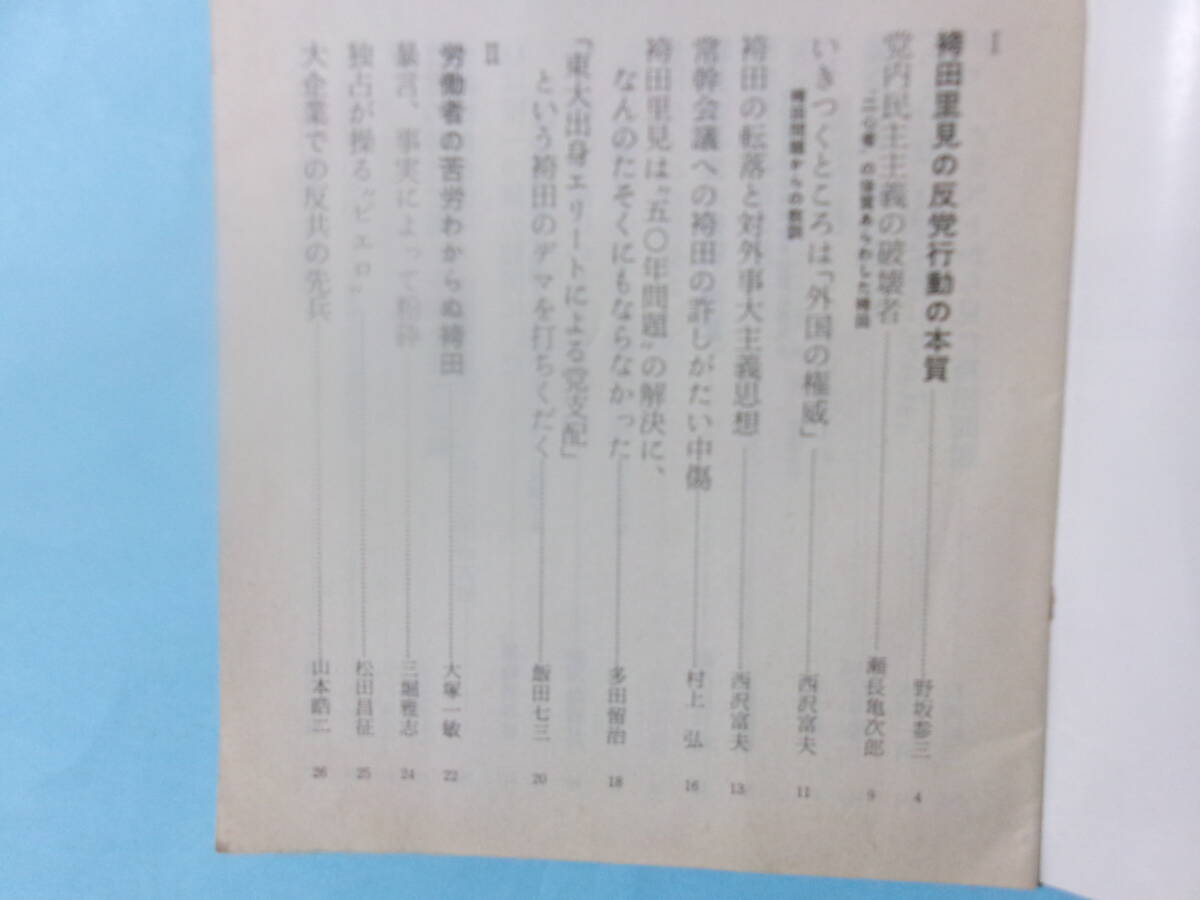 I
袴田里見の反党行動の本質 野坂参三 4
党内民主主義の破壊者 瀬長亀次郎 9
“二心者”の実質あらわした袴田
いきつくところは「外国の権威」 西沢富夫 11
袴田問題からの教訓
袴田の転落と対外事大主義思想 西沢富夫 13
常幹会議への袴田の許しがたい中傷 村上 弘 16
袴田里見は“五〇年問題”の解決に、
なんのたそくにもならなかった 多田留治 18
「東大出身エリートによる党支配」
という袴田のデマを打ちくだく 飯田七三 20
II
労働者の苦労わからぬ袴田 大塚一敏 22
暴言、事実によって粉砕 三堀雅志 24
独占が操る“ピエロ” 松田昌征 25
大企業での反共の先兵 山本皓二 26